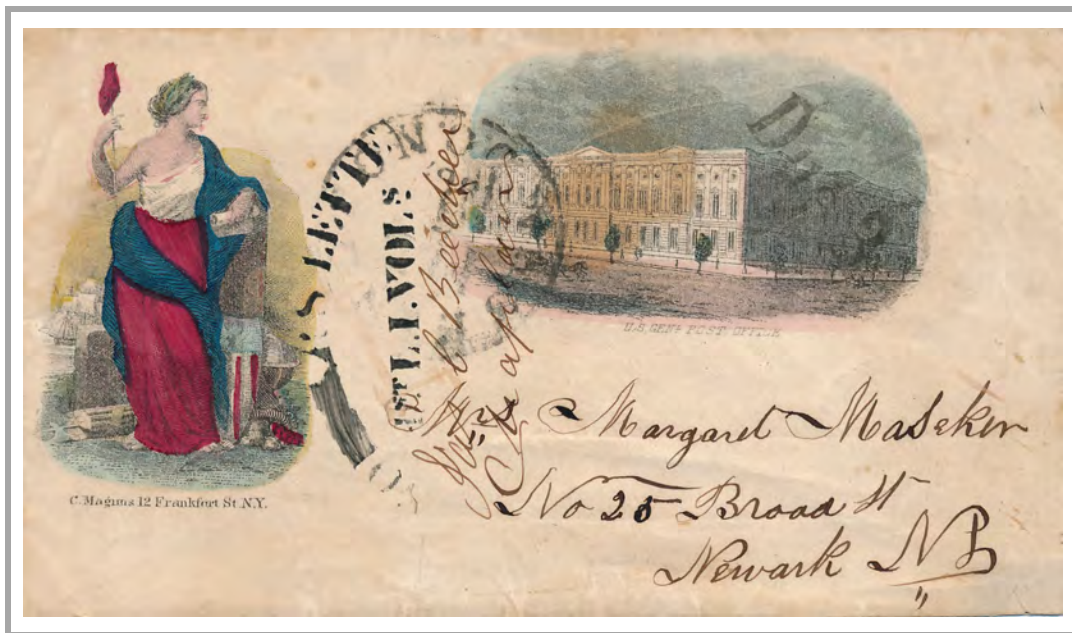 C. Magnus 12 Frankfort St. N.Y.
U.S. GENl. POST OFFICE
Due 3
S LETTE
1st L.I. VOLS
Chaplain
Margaret Maseker
No 25 Broad St
Newark NJ